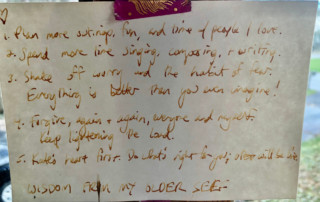 1. Plan more outings, fun, and time w/ people I love.
2. Spend more time singing, composing, + writing.
3. Shake off worry and the habit of fear.
Everything is better than you even imagine!
4. Forgive, again + again, everyone and myself.
Keep lightening the load.
5. heart first. Do what's right for you; will be
WISDOM FROM MY OLDER SELF